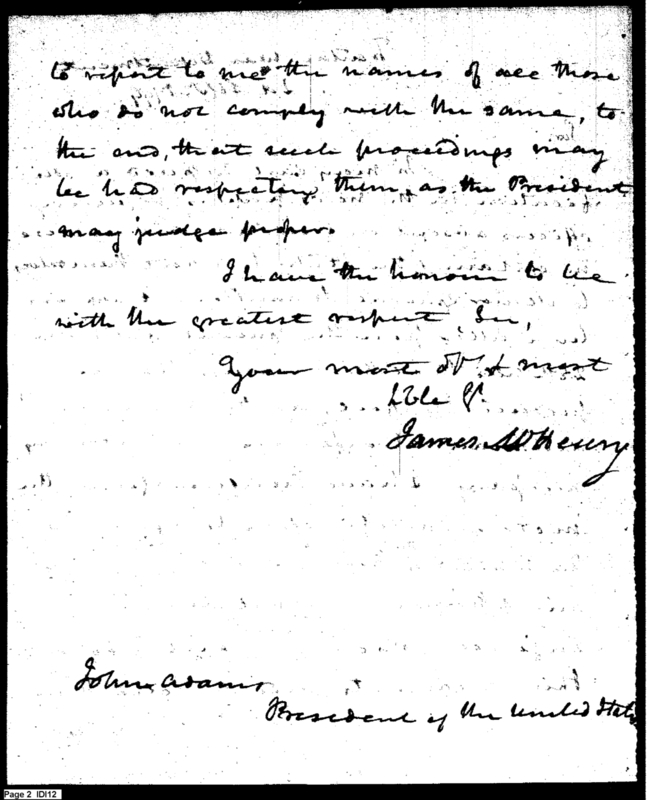 to report to me the names of all those
who do not comply with the same, to
the end, that such proceedings may
be had respecting them, as the President
may judge proper.
I have the honour to be
with the greatest respect Sir,
Your most obt & most
hble St.
James McHenry
John Adams
President of the United States
Page 2 IDI12